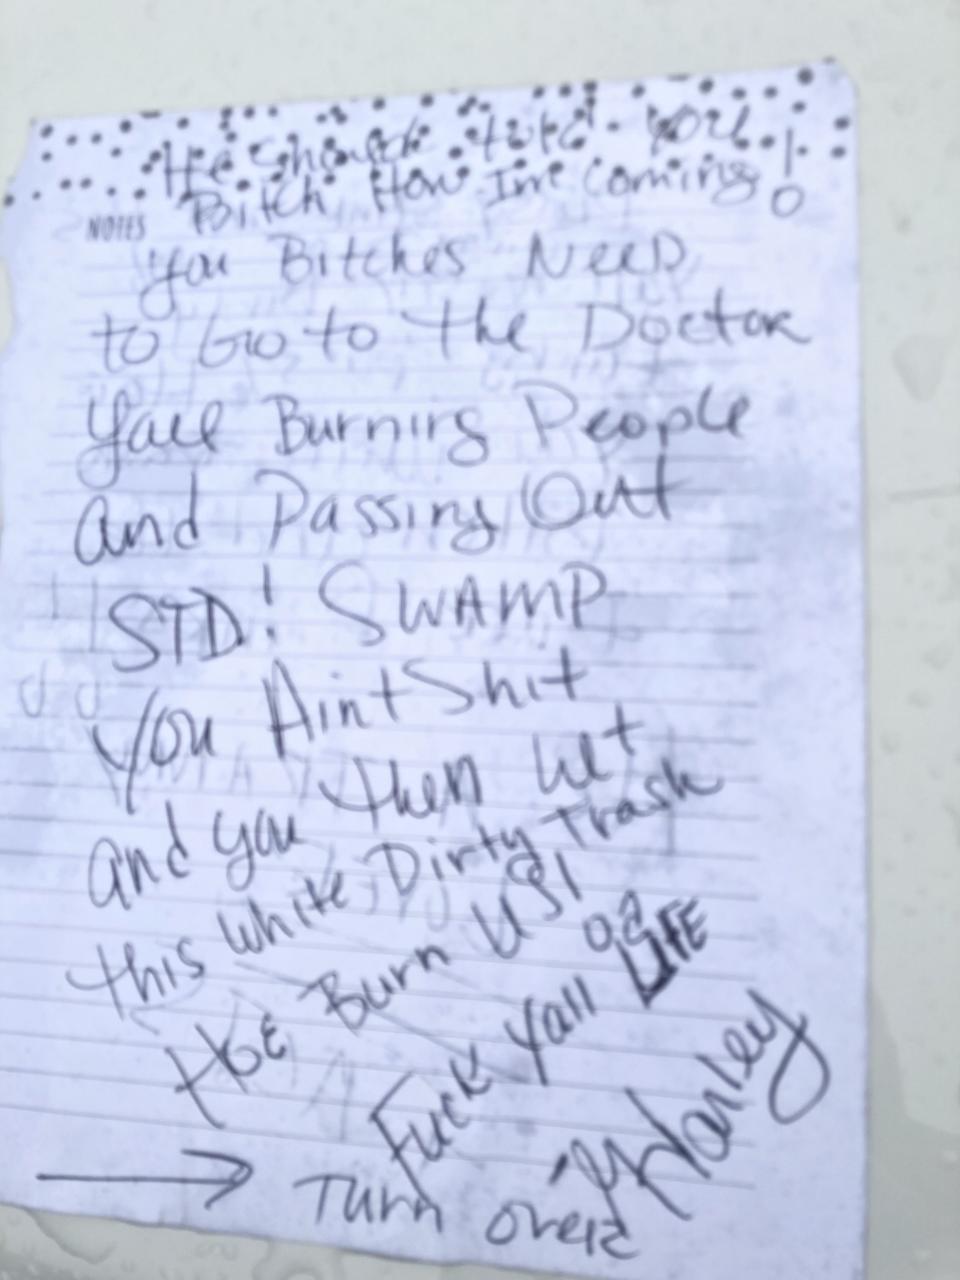 He should told you
Bitch How Im coming!
NOTES
you Bitches NEED
to Go to the Doctor
Yall Burning People
and Passing Out
STD! SWAMP
You Aint Shit
and you then let
this white Dirty Trash
Hoe Burn US!
Fuck Yall LIFE
Harley
Turn over